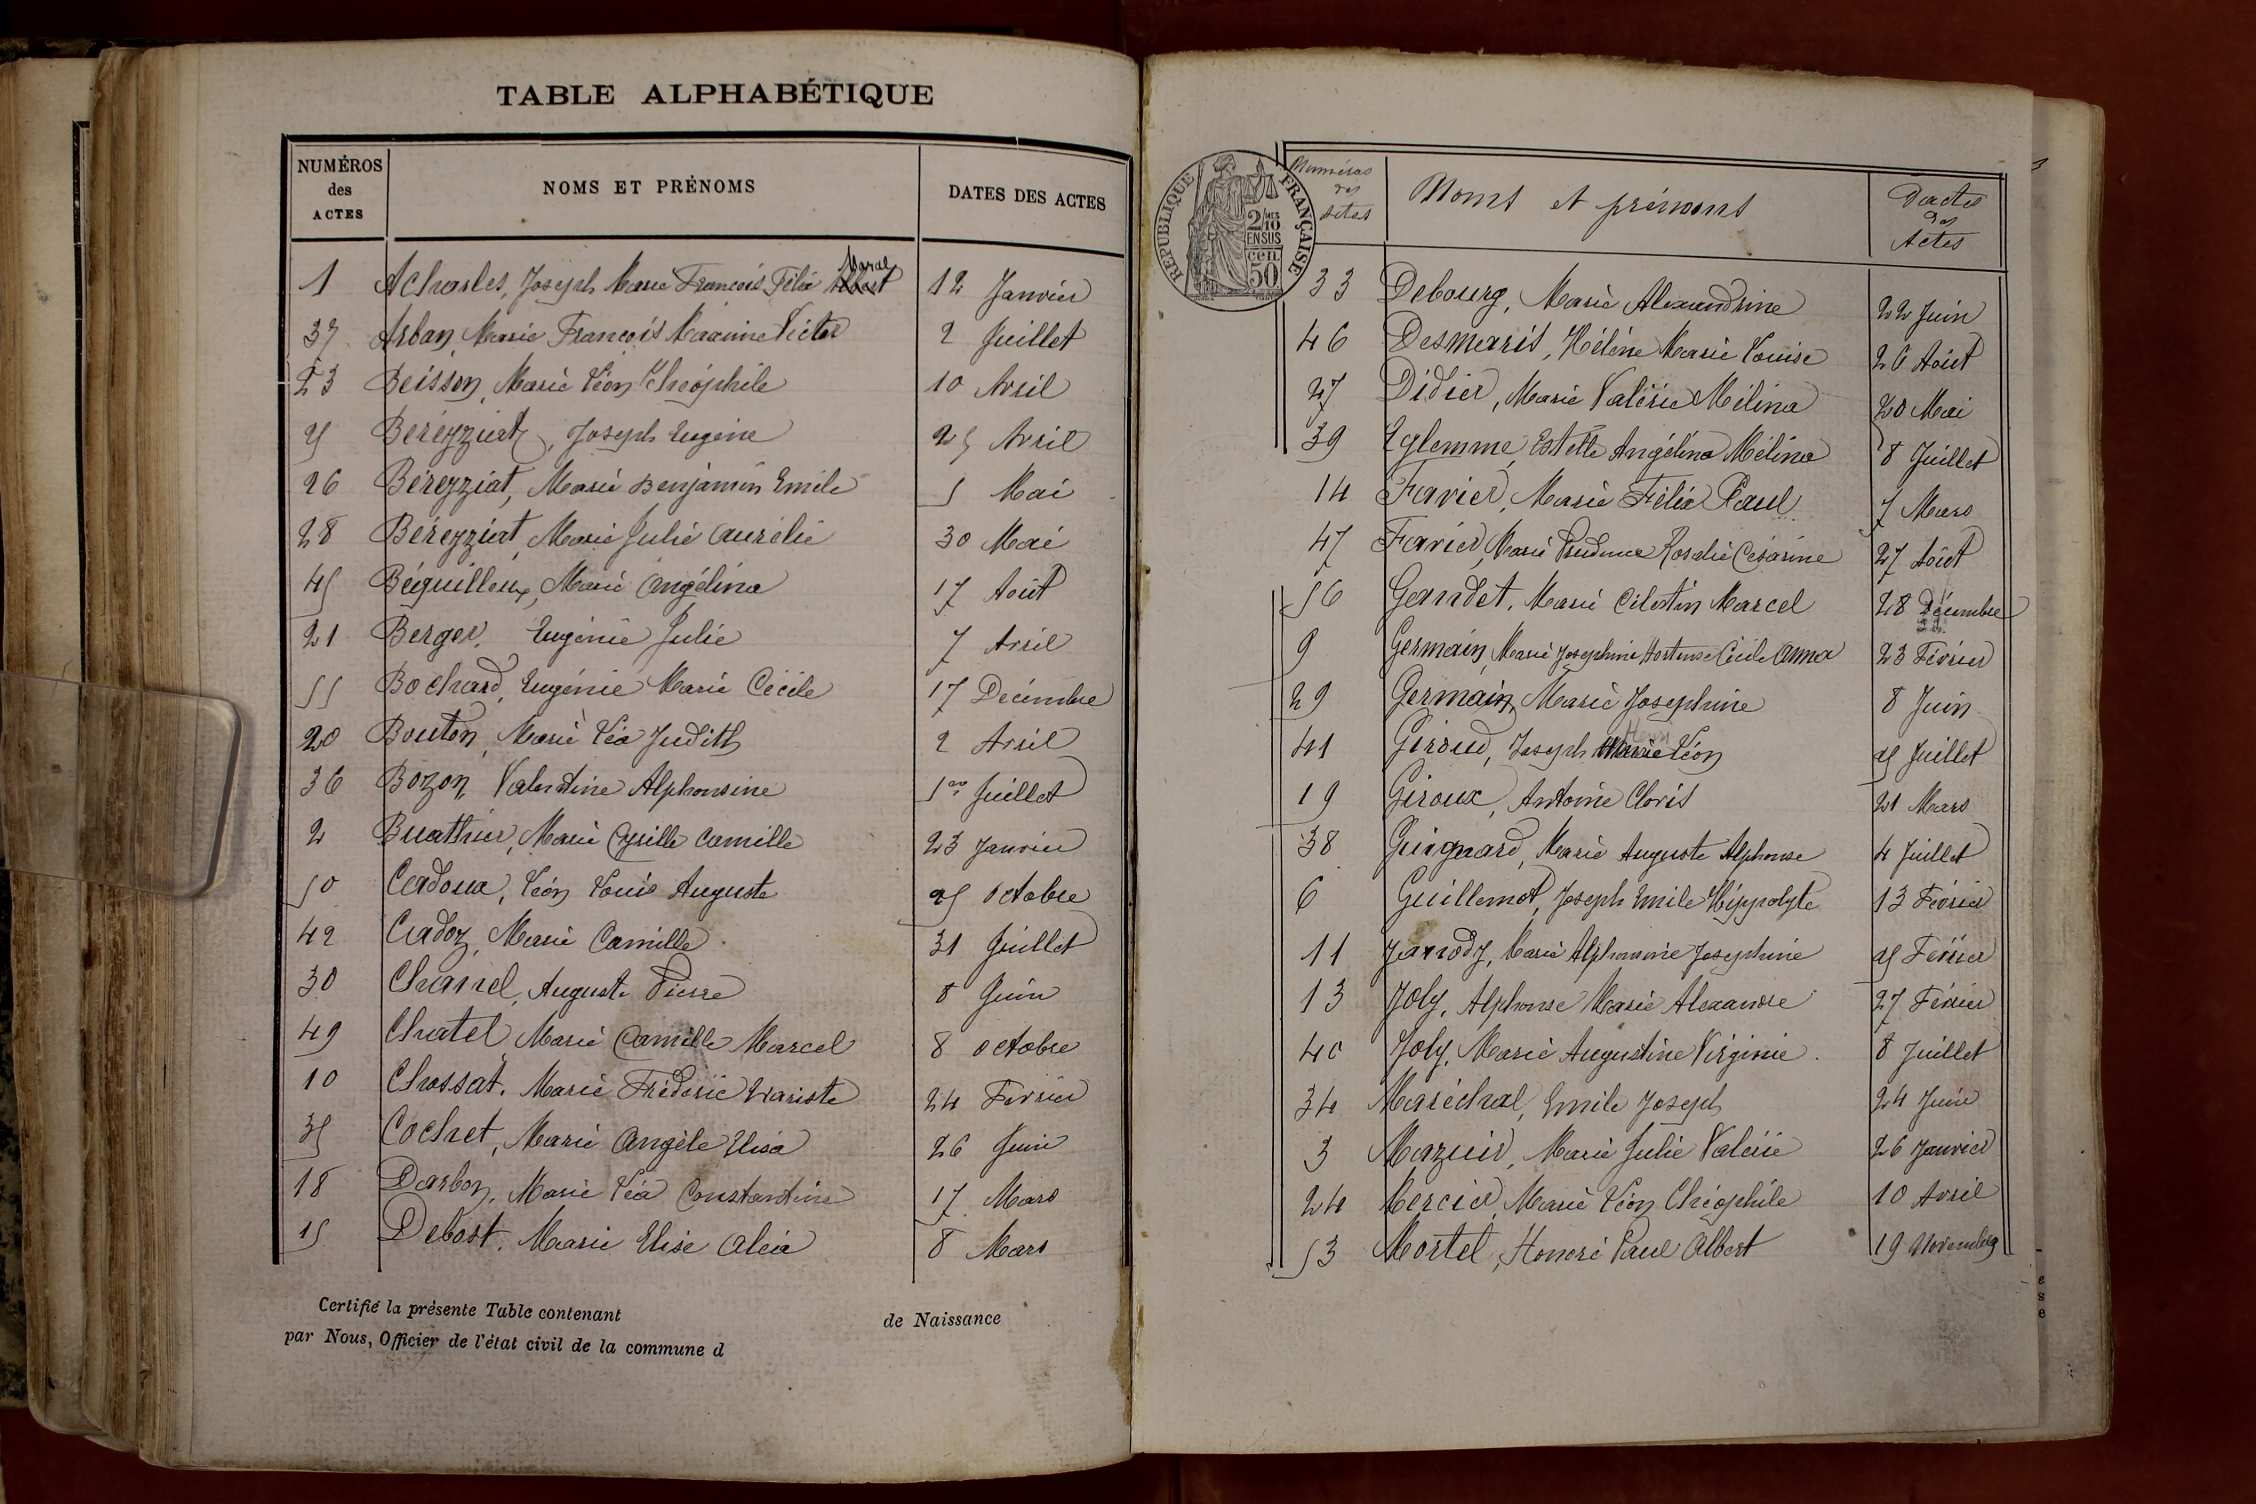 TABLE ALPHABÉTIQUE
NUMÉROS des ACTES NOMS ET PRÉNOMS DATES DES ACTES
1 Acharles, Joseph Marie François Félix 12 Janvier
37 Arban, Marie François Maxime Victor 2 Juillet
23 Beisson, Marie Léon Théophile 10 Avril
25 Béreyziat, Joseph Eugène 25 Avril
26 Béreyziat, Marie Benjamin Emile 5 Mai
28 Béreyziat, Marie Julie Aurélie 30 Mai
45 Béguilleux, Marie Angélina 17 Août
21 Berger, Eugénie Julie 7 Avril
55 Bochard, Eugénie Marie Cécile 17 Décembre
20 Bouton, Marie Léa Judith 2 Avril
36 Bozon, Valentine Alphonsine 1er Juillet
2 Buathier, Marie Cyrille Camille 23 Janvier
50 Cadoux, Léon Louis Auguste 25 Octobre
42 Cadoz, Marie Camille 31 Juillet
30 Charnel, Auguste Pierre 8 Juin
49 Chatel Marie Camille Marcel 8 octobre
10 Chossat, Marie Frédéric Evariste 24 Février
35 Cochet, Marie Angèle Elisa 26 Juin
18 Darbon, Marie Léa Constantine 17 Mars
15 Debost, Marie Elise Aléia 8 Mars
Certifié la présente Table contenant de Naissance
par Nous, Officier de l'état civil de la commune d
RÉPUBLIQUE FRANÇAISE
2/10 EN SUS
50 cen
Numéros des Actes Noms et prénoms Dactes des Actes
33 Debourg, Marie Alexandrine 22 Juin
46 Desmaris, Hélène Marie Louise 26 Août
27 Didier, Marie Valérie Mélina 20 Mai
39 Eglemme, Estelle Angélina Mélina 8 Juillet
14 Favier, Marie Félix Paul 7 Mars
47 Favier, Marie Prudence Rosalie Césarine 27 Août
56 Gandet, Marie Célestin Marcel 28 Décembre
9 Germain, Marie Joséphine Hortense Cécile Anna 23 Février
29 Germain, Marie Joséphine 8 Juin
41 Giroud, Joseph Henri Léon 25 Juillet
19 Giroux, Antoine Clovis 21 Mars
38 Guignard, Marie Auguste Alphonse 4 Juillet
6 Guillemot, Joseph Emile Hippolyte 13 Février
11 Janody, Marie Alphonsine Joséphine 25 Février
13 Joly, Alphonse Marie Alexandre 27 Février
40 Joly, Marie Augustine Virginie 8 Juillet
34 Maréchal, Emile Joseph 24 Juin
3 Mazuir, Marie Julie Valérie 26 Janvier
24 Mercier, Marie Léon Théophile 10 Avril
53 Mortel, Honoré Paul Albert 19 Novembre